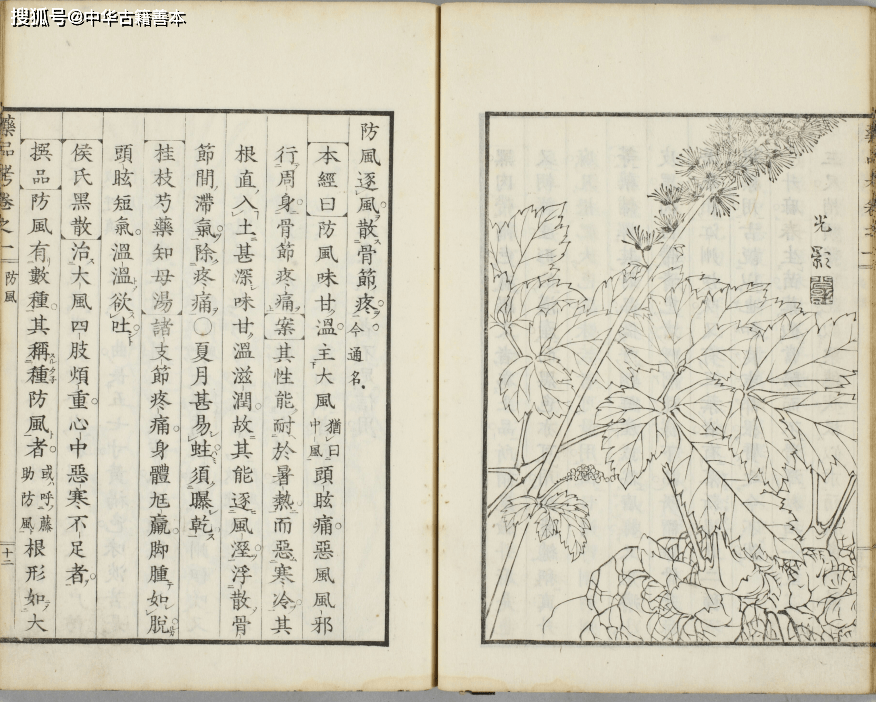 搜狐号@中华古籍善本
光彰
防風逐風散骨節疼今通名
本經曰防風味甘溫主大風猶曰中風頭眩痛惡風風邪
行周身骨節疼痛案其性能耐於暑熱而惡寒冷其
根直入土甚深味甘溫滋潤故其能逐風溼浮散骨
節間滯氣除疼痛○夏月甚易蛀須曝乾
桂枝芍藥知母湯諸支節疼痛身體尫羸脚腫如脫
頭眩短氣溫溫欲吐
侯氏黑散治大風四肢煩重心中惡寒不足者
撰品防風有數種其稱種防風者或呼藤助防風根形如大
藥品考卷之一
防風
十二